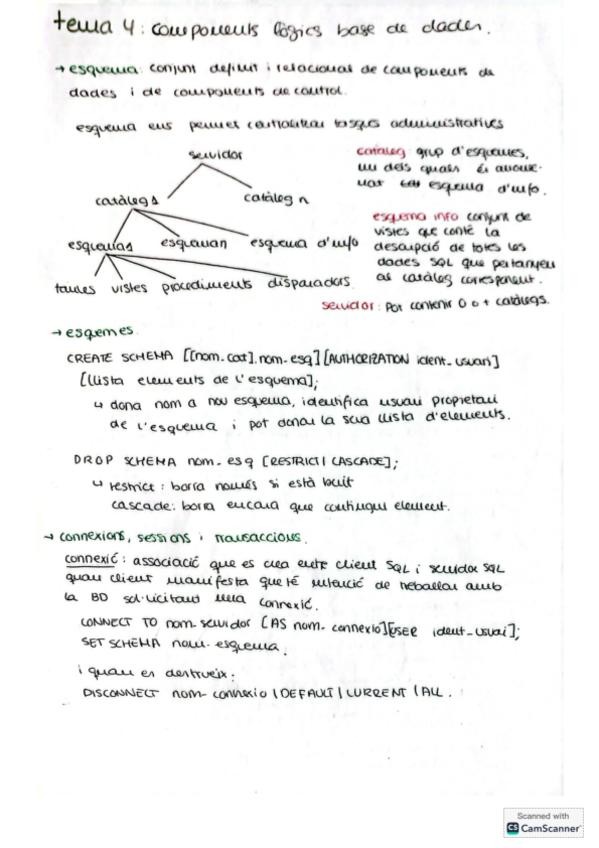 tema 4: components lògics base de dades.
→ esquema: conjunt definit i relacional de components de
dades i de components de control.
esquema ens permet controlar tasques administratives
servidor
catàleg 1
catàleg n
esquema1
esquema n
esquema d'info
taules vistes procediments disparadors
catàleg: grup d'esquemes,
un dels quals és anome-
nat esquema d'info.
esquema info conjunt de
vistes que conté la
descripció de totes les
dades SQL que pertanyen
al catàleg corresponent.
servidor: pot contenir 0 o + catàlegs.
→ esquemes
CREATE SCHEMA [[nom_cat].nom_esq][AUTHORIZATION ident_usuari]
[llista elements de l'esquema];
↳ dona nom a nou esquema, identifica usuari propietari
de l'esquema i pot donar la seva llista d'elements.
DROP SCHEMA nom_esq [RESTRICT|CASCADE];
↳ restrict: borra només si està buit
cascade: borra encara que contingui element.
→ connexions, sessions i transaccions.
connexió: associació que es crea entre client SQL i servidor SQL
quan client manifesta que té intenció de treballar amb
la BD sol·licitant una connexió.
CONNECT TO nom_servidor [AS nom_connexio][USER ident_usuari];
SET SCHEMA nom_esquema.
i quan es destrueix:
DISCONNECT nom_connexio|DEFAULT|CURRENT|ALL.
Scanned with
CS CamScanner